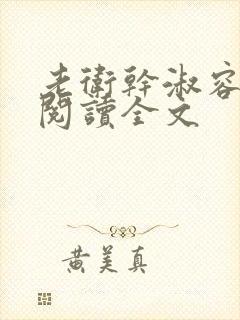 老衛幹淑容
閱讀全文
黄美真